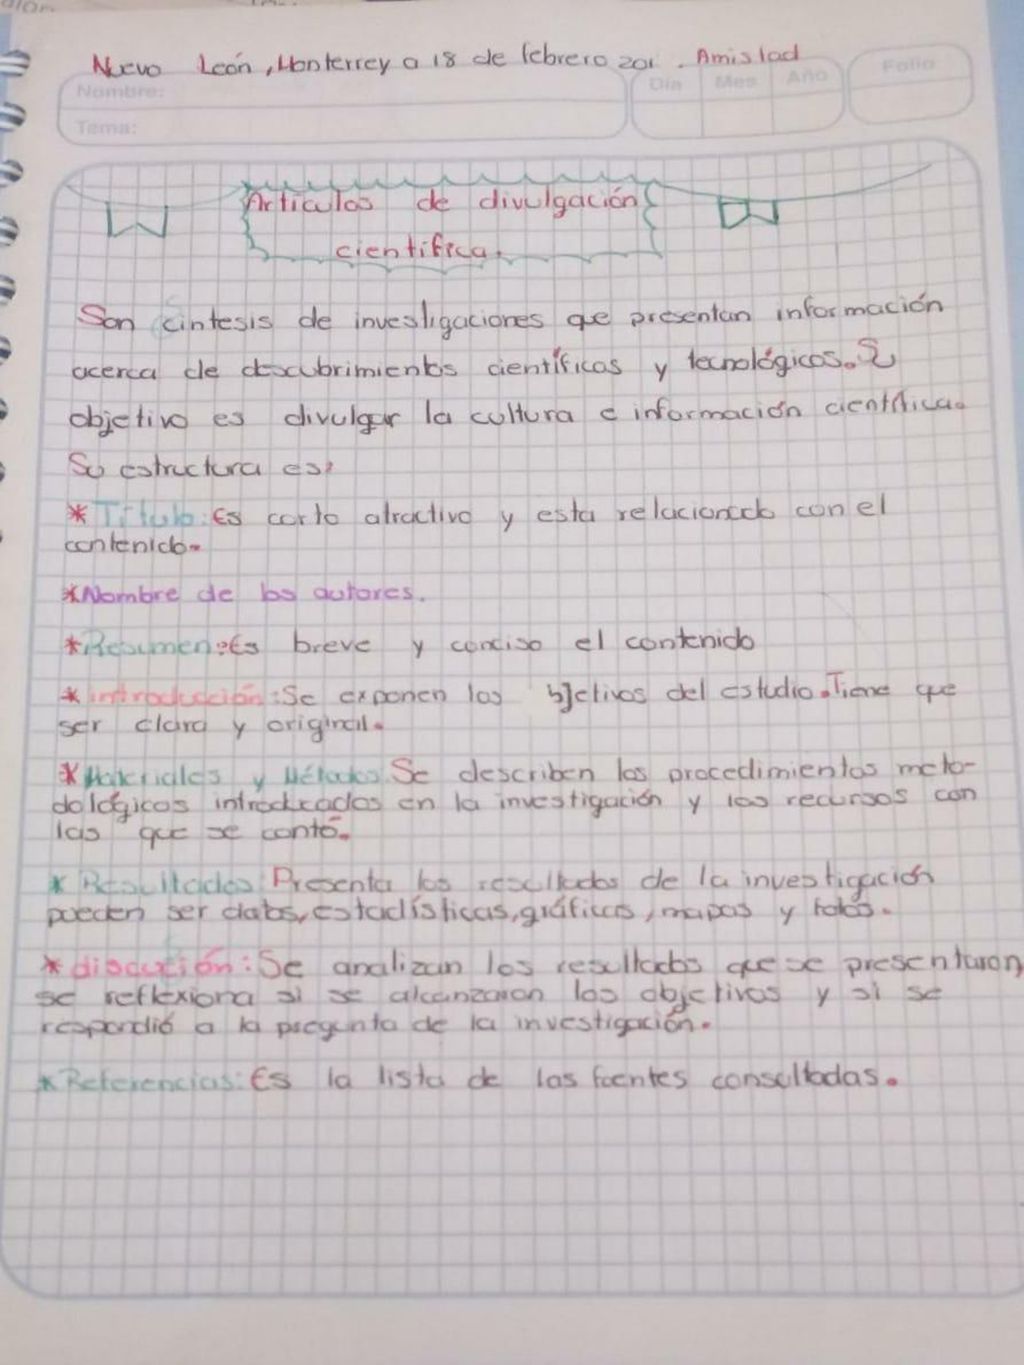 Nuevo León, Monterrey a 18 de febrero 201 . Amistad
Nombre:
Día Mes Año
Folio
Tema:
Artículos de divulgación
científica.
Son cintesis de investigaciones que presentan información
acerca de descubrimientos científicos y tecnológicos. Su
objetivo es divulgar la cultura e información científica.
Su estructura es:
* Título: Es corto atractivo y esta relacionado con el
contenido.
*Nombre de los autores.
*Resumen: Es breve y conciso el contenido
* introducción: Se exponen los bjetivos del estudio. Tiene que
ser clara y original.
*Materiales y Métodos. Se describen los procedimientos meto-
dológicos introducados en la investigación y los recursos con
las que se contó.
* Resultados: Presenta los resultados de la investigación
pueden ser datos, estadísticas, gráficas, mapas y fotos.
* discución: Se analizan los resultados que se presentaron,
se reflexiona si se alcanzaron los objetivos y si se
respondió a la pregunta de la investigación.
*Referencias: Es la lista de las fuentes consultadas.